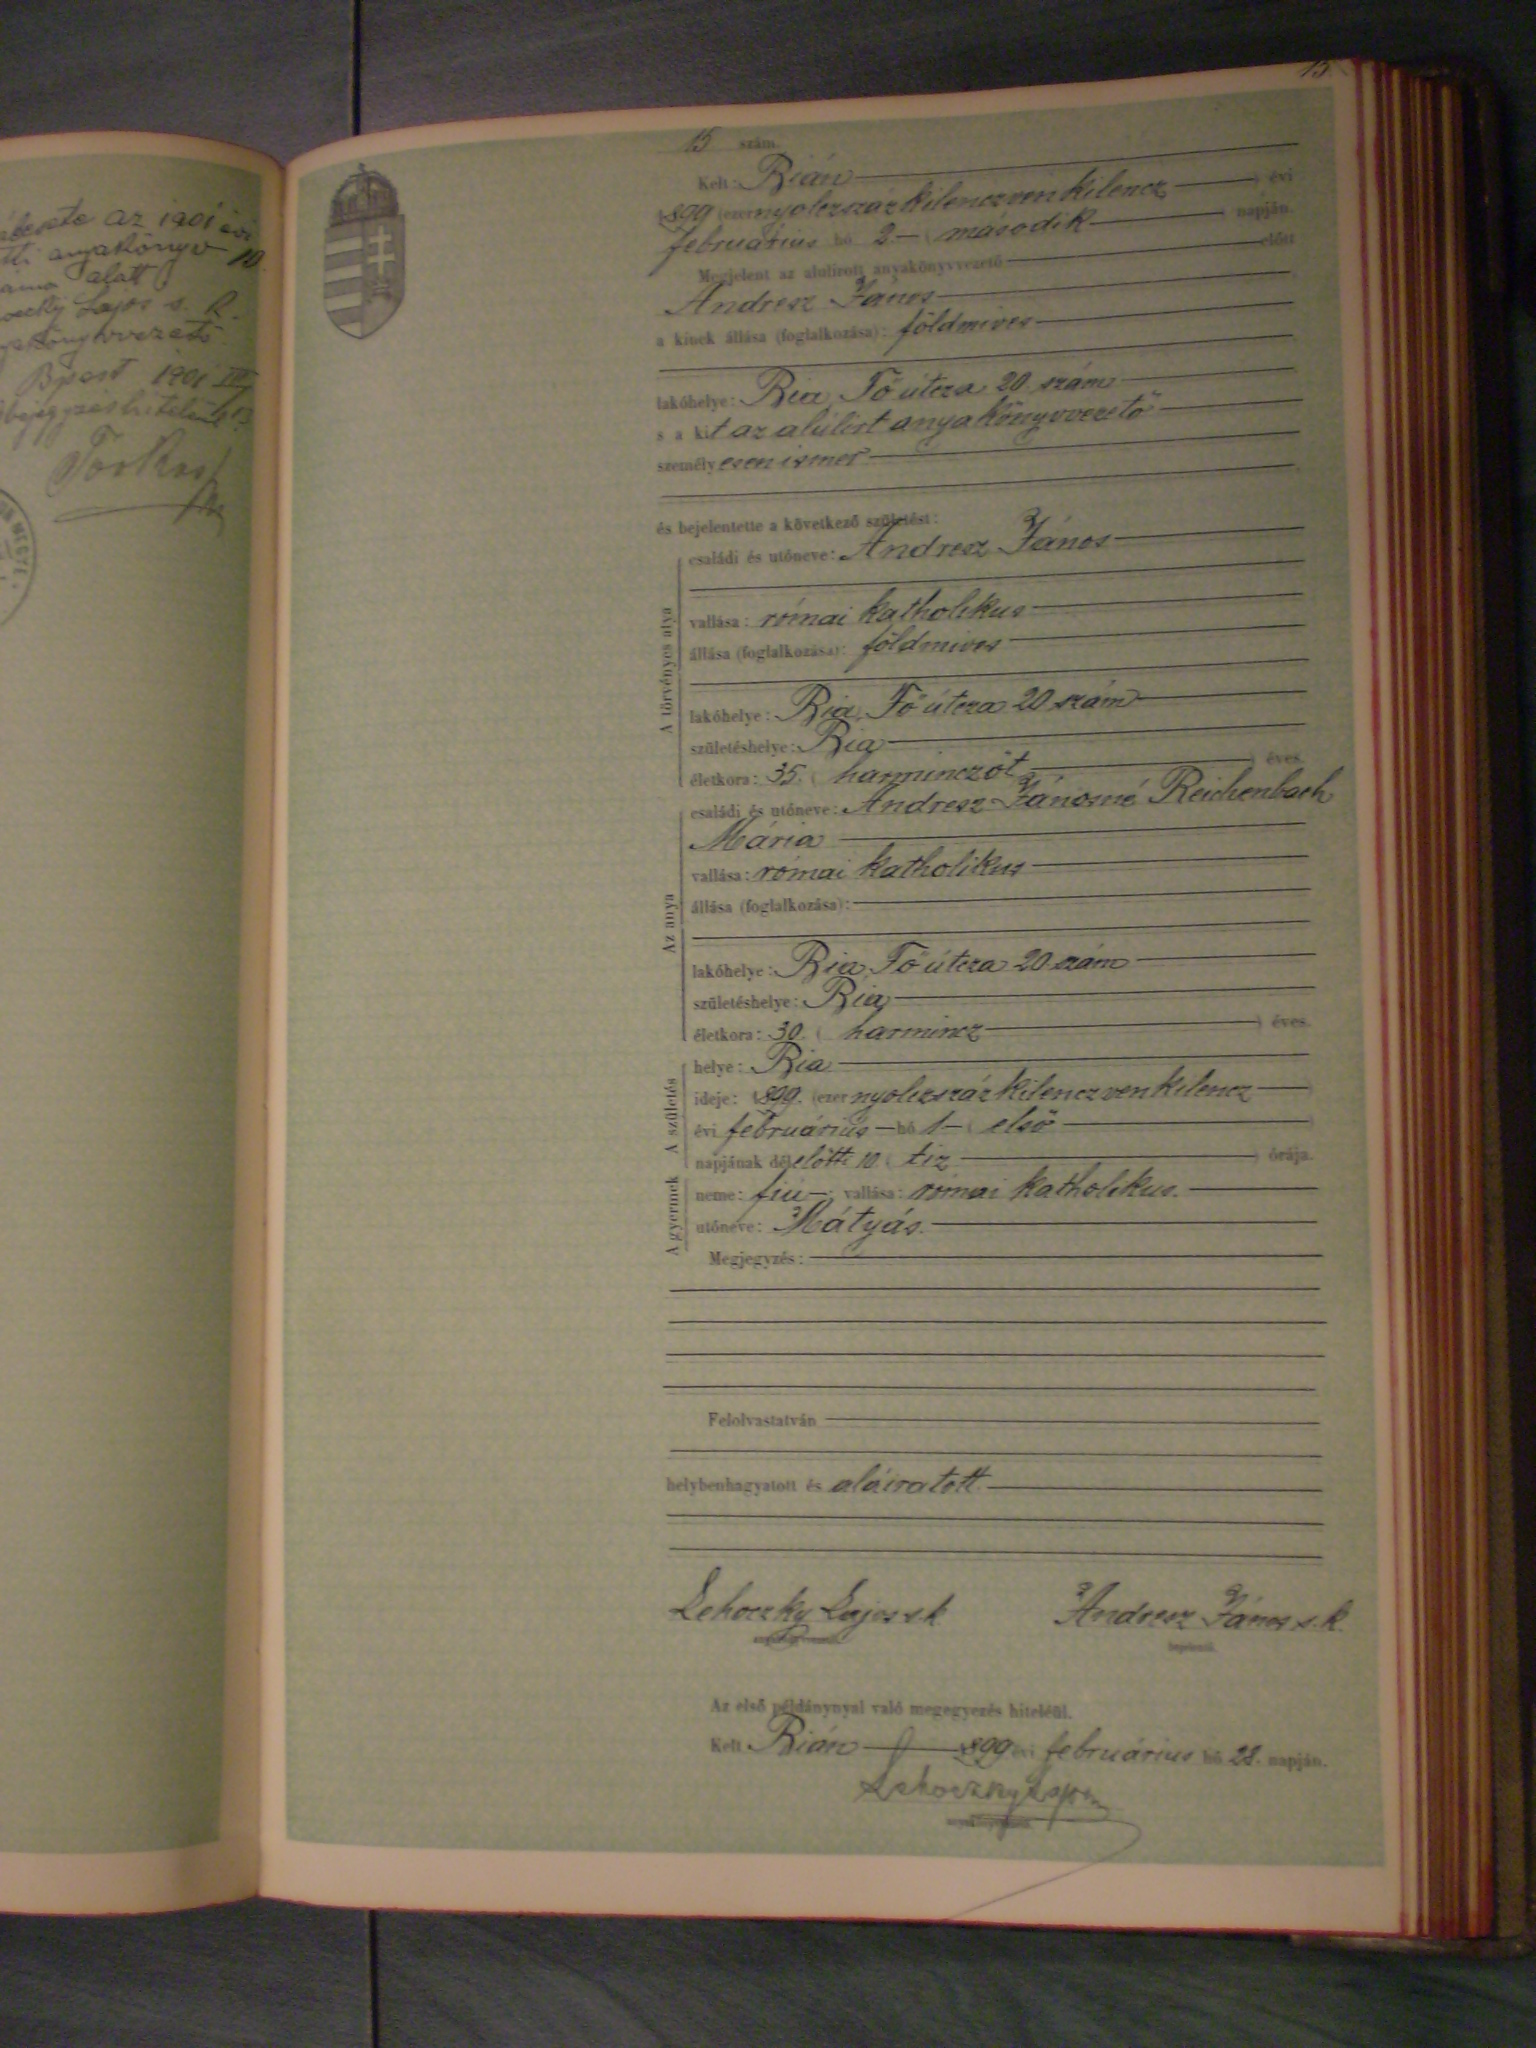 az 1901 évi
anyakönyv 10
alatt
Lajos s. k.
Bpest 1901
15
15 szám.
Kelt: Rián évi
1899 (ezernyolczszázkilenczvenkilencz
februárius hó 2. (második napján.
Megjelent az alulirott anyakönyvvezető előtt
Andresz János
a kinek állása (foglalkozása): földmives
lakóhelye: Ria Fő útcza 20 szám
s a kit az alúlírt anyakönyvvezető
személyesen ismer
és bejelentette a következő születést:
A törvényes atya
családi és utóneve: Andresz János
vallása: római katholikus
állása (foglalkozása): földmives
lakóhelye: Ria, Fő útcza 20 szám
születéshelye: Ria
életkora: 35. ( harminczöt ) éves.
Az anya
családi és utóneve: Andresz Jánosné Reichenbach
Mária
vallása: római katholikus
állása (foglalkozása):
lakóhelye: Ria, Fő útcza 20 szám
születéshelye: Ria,
életkora: 30. ( harmincz ) éves.
A születés
helye: Ria
ideje: 1899. (ezernyolczszázkilenczvenkilencz )
évi februárius hó 1 ( első )
napjának délelőtti 10 ( tiz ) órája.
A gyermek
neme: fiú; vallása: római katholikus.
utóneve: Mátyás.
Megjegyzés:
Felolvastatván
helybenhagyatott és aláiratott.
Lehoczky Lajos s k Andresz János s. k.
bejelentő.
Az első példánynyal való megegyezés hiteléül.
Kelt Rián 1899 évi februárius hó 28. napján.
Lehoczky Lajos